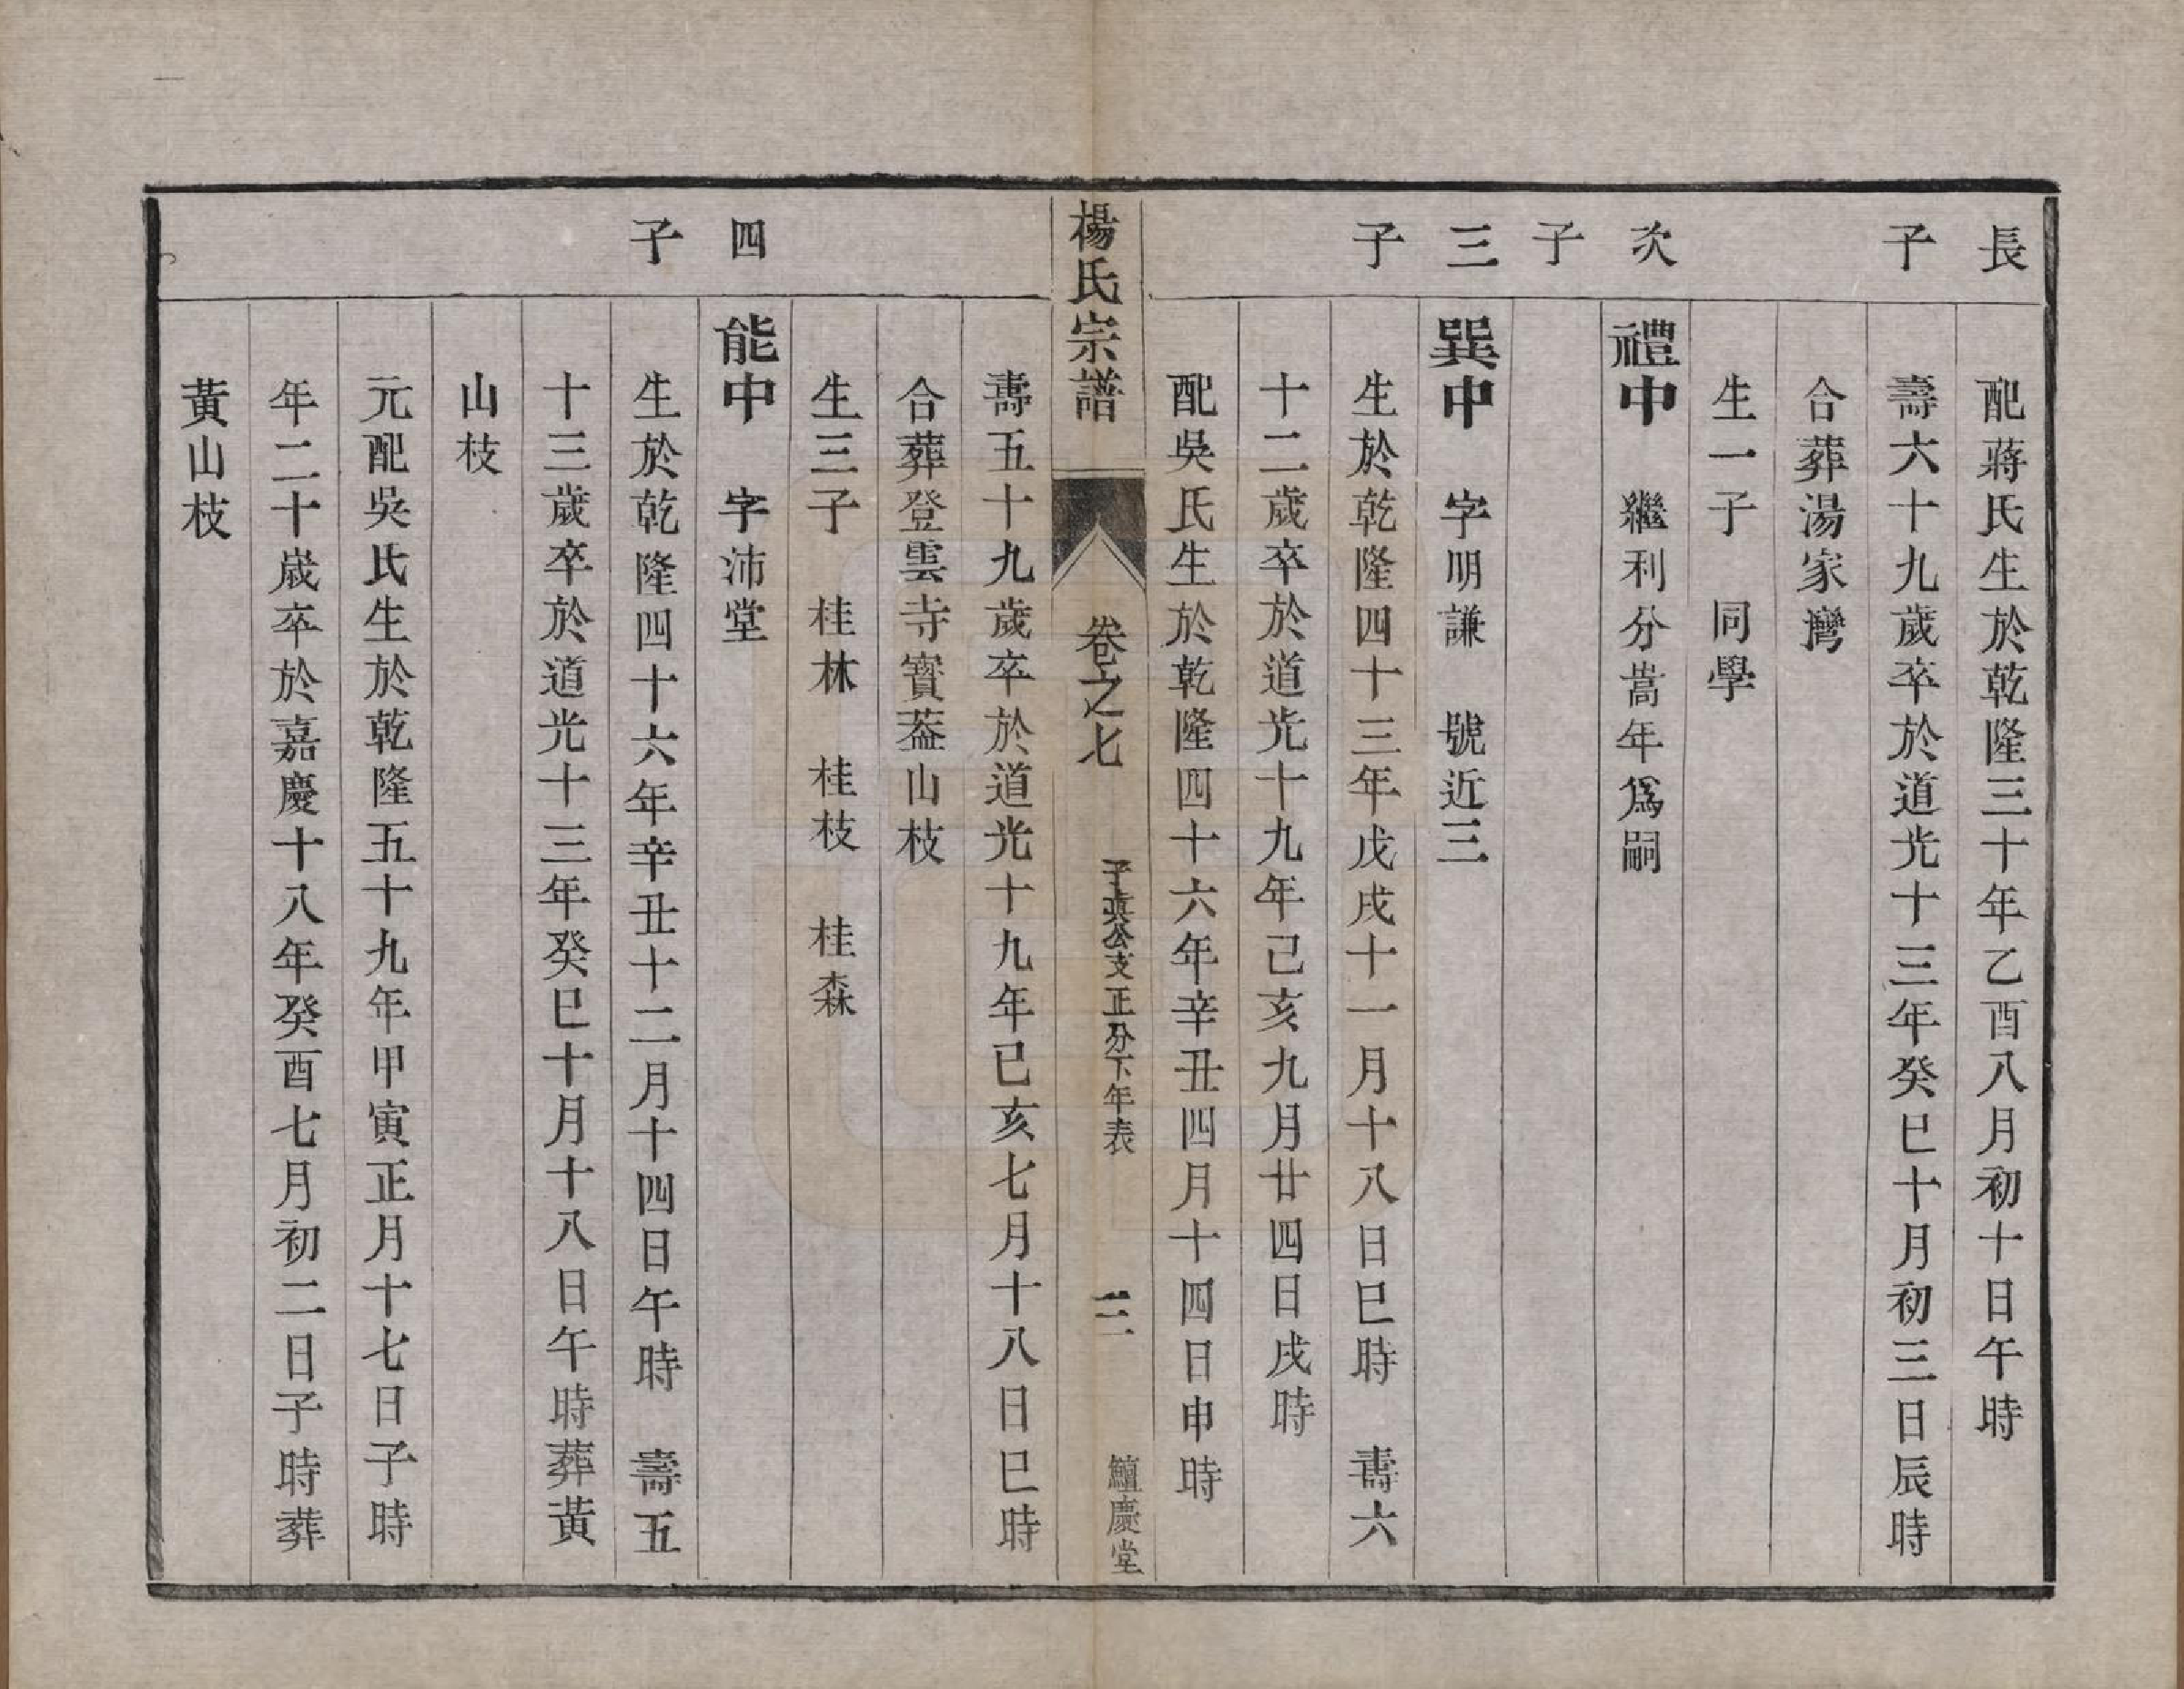 長子
配蔣氏生於乾隆三十年乙酉八月初十日午時
壽六十九歲卒於道光十三年癸巳十月初三日辰時
合葬湯家灣
生一子　同學
次子
禮中　繼利分嵩年爲嗣
三子
巽中　字明謙　號近三
生於乾隆四十三年戊戌十一月十八日巳時　壽六
十二歲卒於道光十九年己亥九月廿四日戌時
配吳氏生於乾隆四十六年辛丑四月十四日申時
楊氏宗譜　卷之七　子眞公支正分下年表　三　鱣慶堂
壽五十九歲卒於道光十九年己亥七月十八日巳時
合葬登雲寺寶葢山枝
生三子　桂林　桂枝　桂森
四子
能中　字沛堂
生於乾隆四十六年辛丑十二月十四日午時　壽五
十三歲卒於道光十三年癸巳十月十八日午時葬黃
山枝
元配吳氏生於乾隆五十九年甲寅正月十七日子時
年二十歲卒於嘉慶十八年癸酉七月初二日子時葬
黃山枝